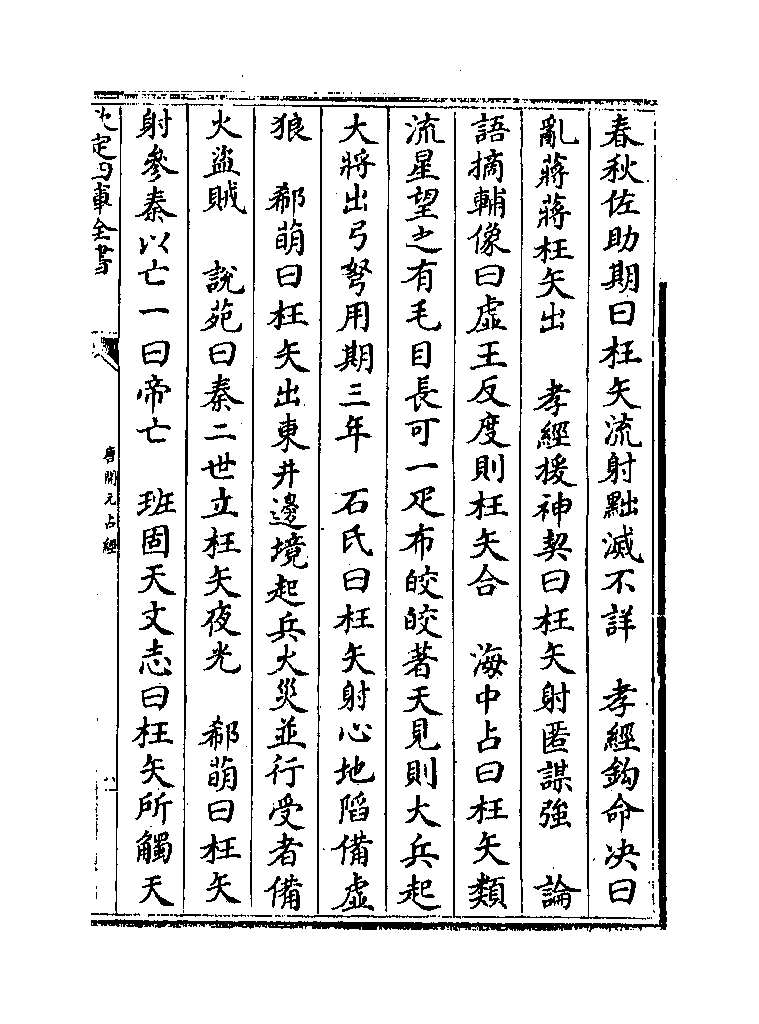 春秋佐助期曰枉矢流射黜滅不詳　孝經鈎命决曰
亂蔣蔣枉矢出　孝經援神契曰枉矢射匿謀強　論
語摘輔像曰虛王反度則枉矢合　海中占曰枉矢類
流星望之有毛目長可一疋布皎皎著天見則大兵起
大將出弓弩用期三年　石氏曰枉矢射心地陷備虛
狼　郗萌曰枉矢出東井邊境起兵火災並行受者備
火盜賊　說苑曰秦二世立枉矢夜光　郗萌曰枉矢
射參秦以亡一曰帝亡　班固天文志曰枉矢所觸天
欽定四庫全書
唐開元占經